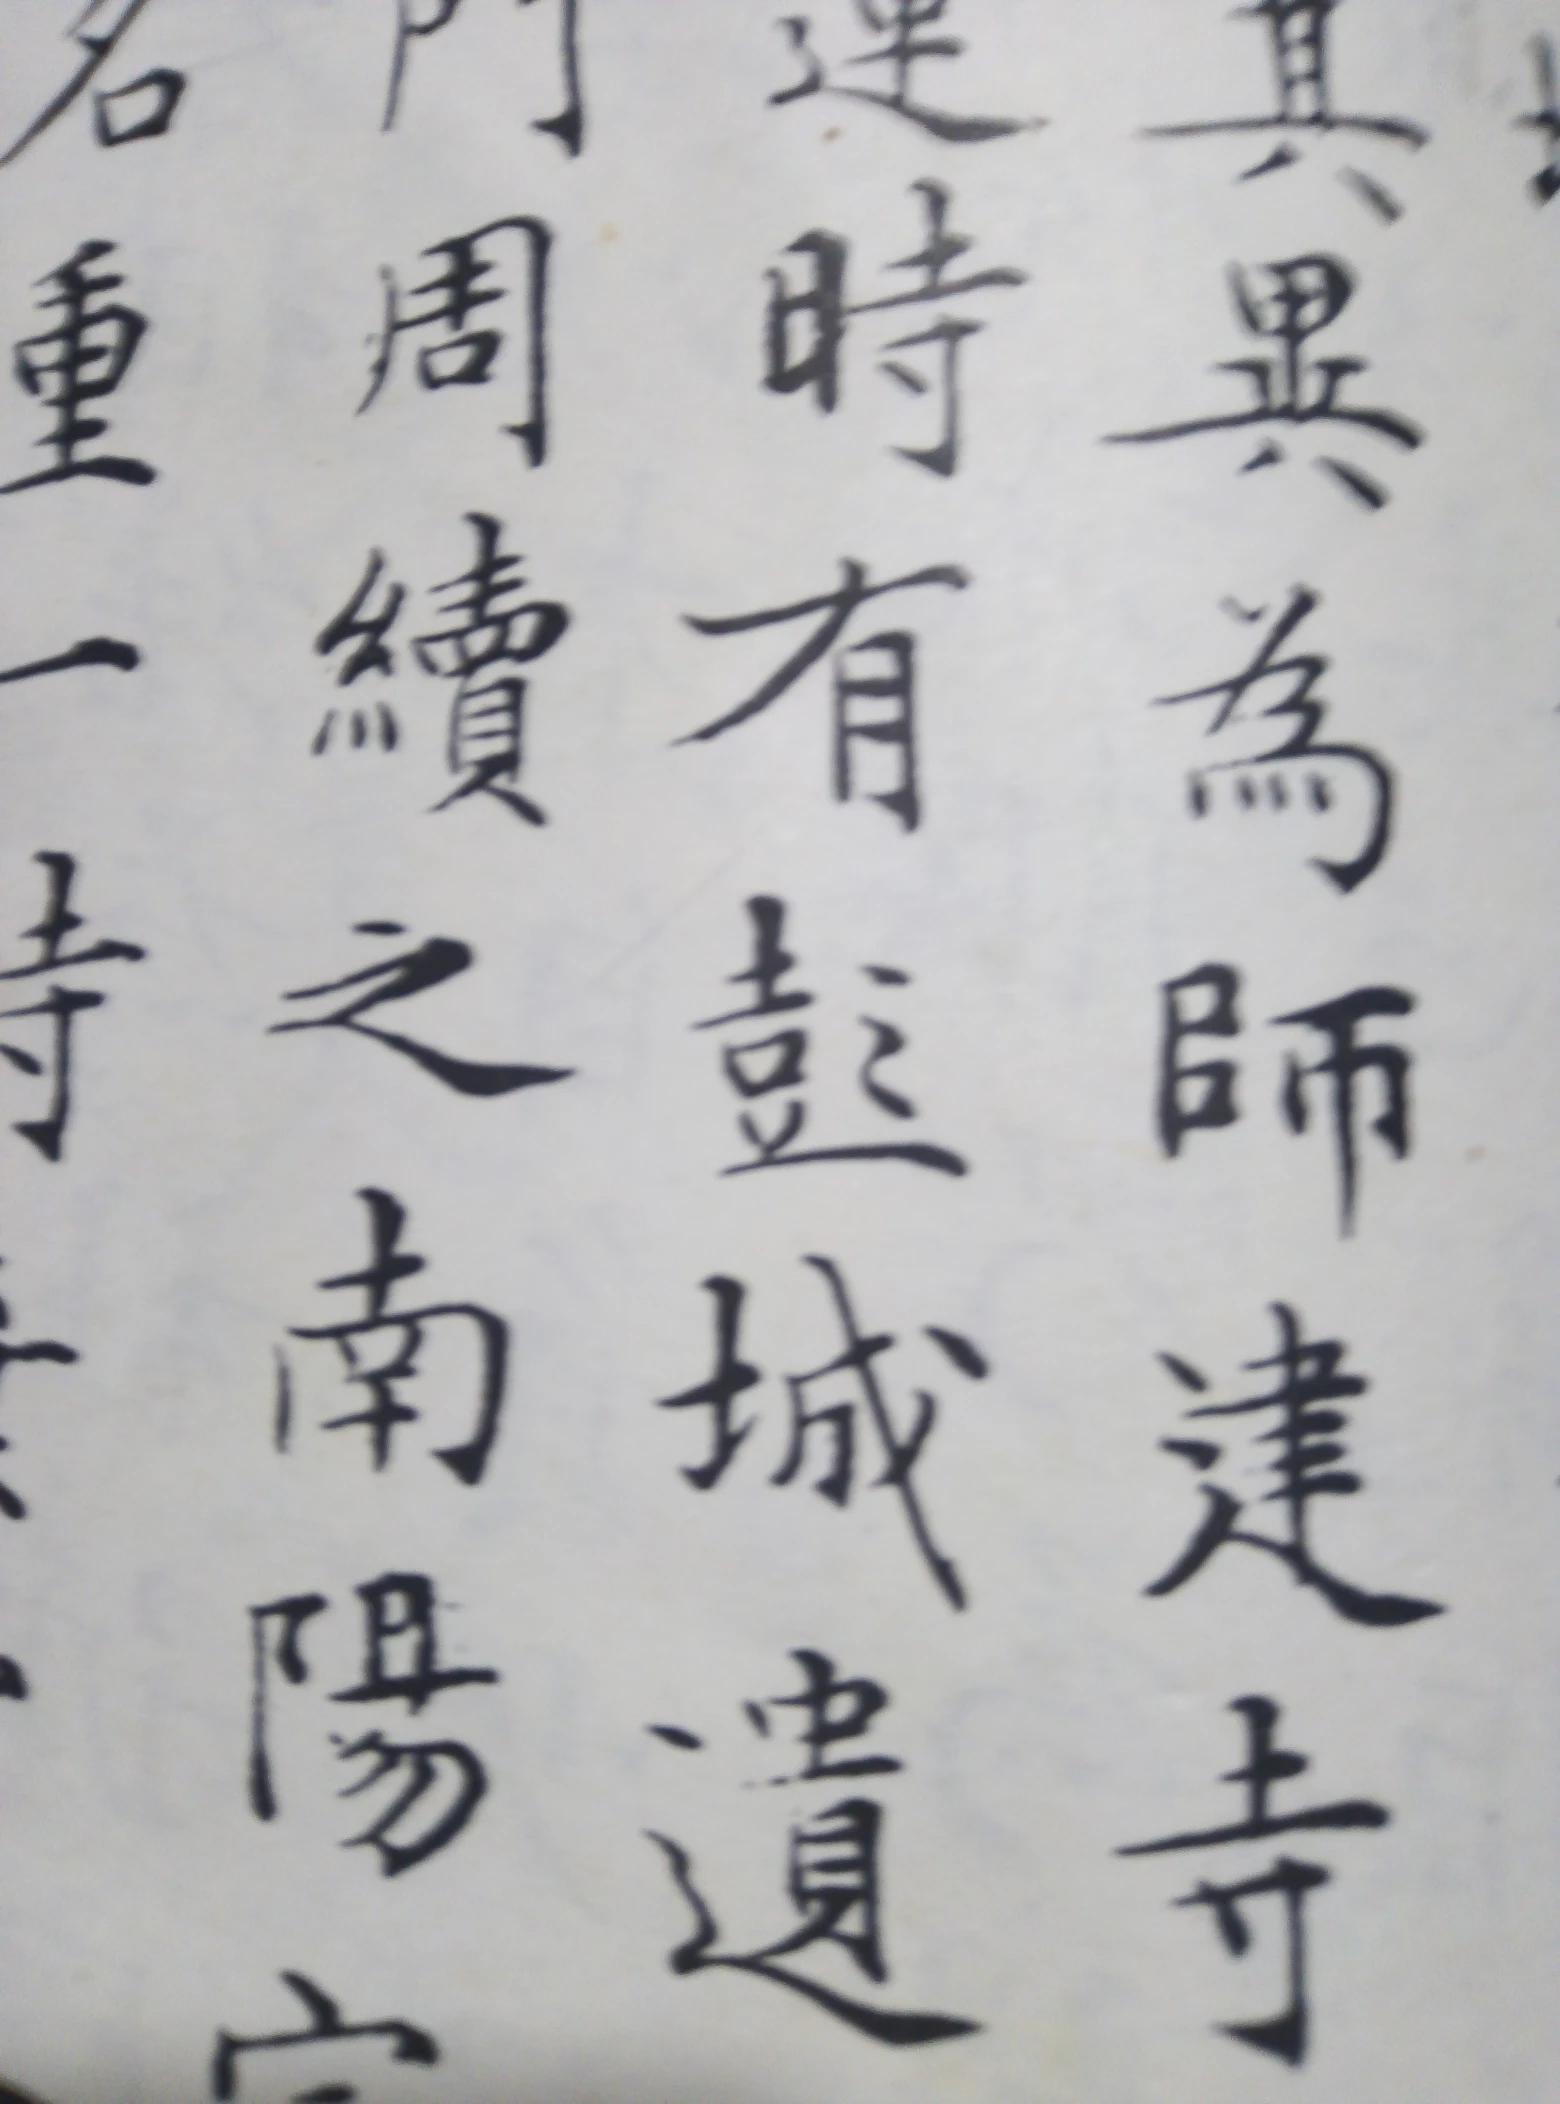 其異為師建寺
蓮時有彭城遺
門周續之南陽宗
名重一時